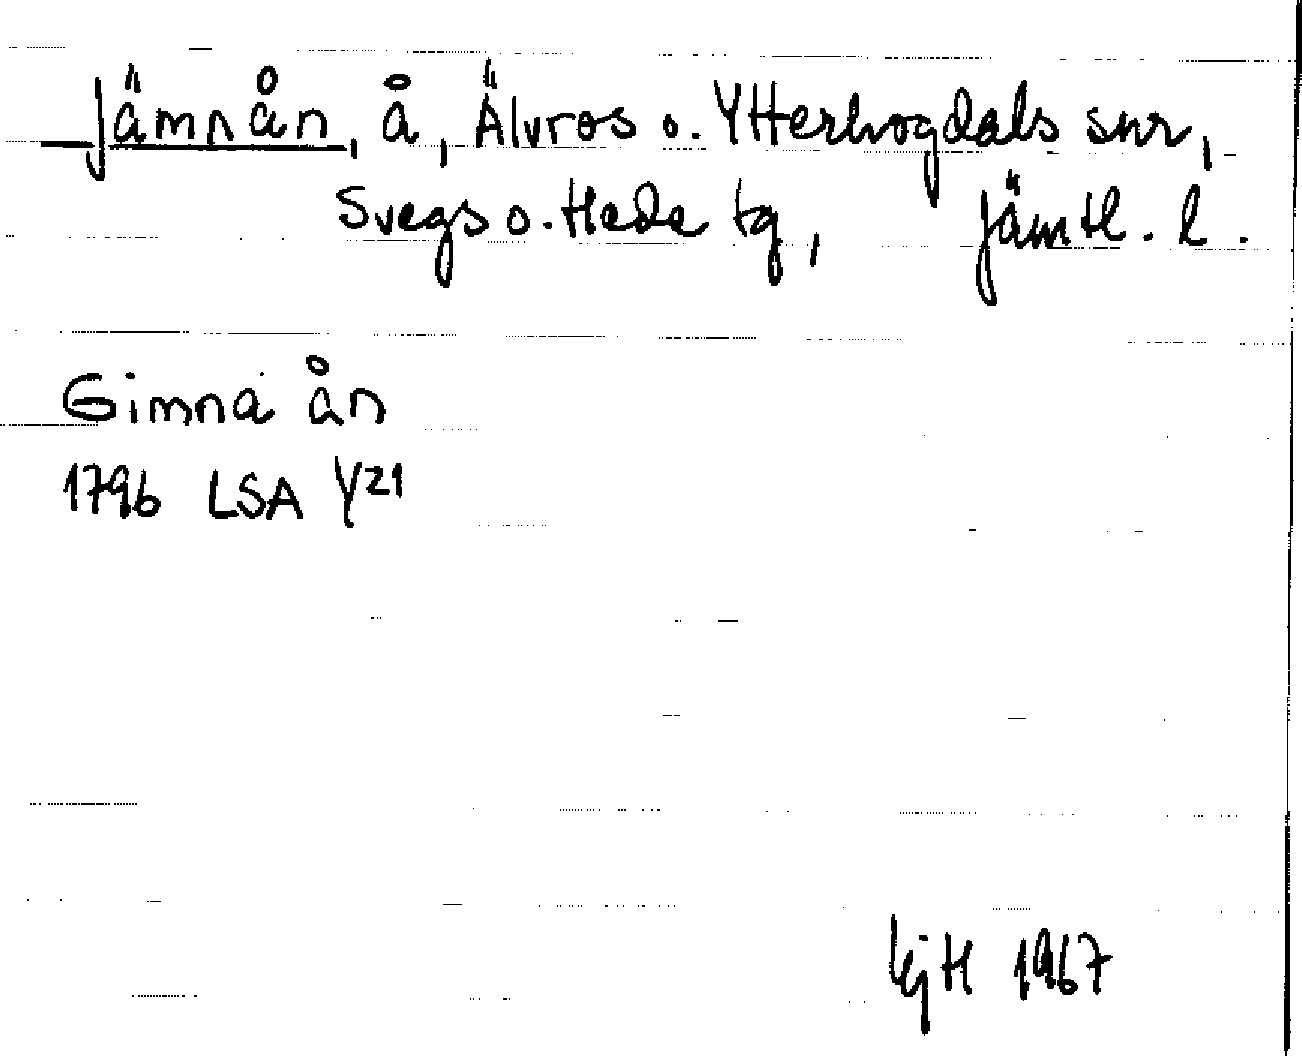 Jämnån, å, Älvros o. Ytterhogdals snr,
Svegs o. Hede tg, Jämtl. l.
Gimna ån
1796 LSA Y21
LjH 1967